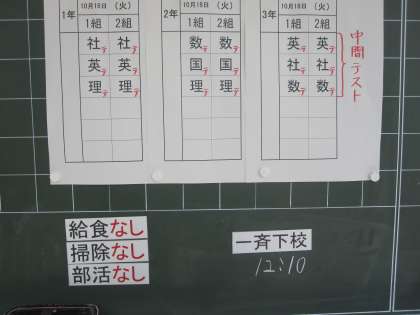 1年 10月18日 (火)
1組 2組
社テ 社テ
英テ 英テ
理テ 理テ
2年 10月18日 (火)
1組 2組
数テ 数テ
国テ 国テ
理テ 理テ
3年 10月18日 (火)
1組 2組
英テ 英テ
社テ 社テ
数テ 数テ
中間テスト
給食なし
掃除なし
部活なし
一斉下校
12:10